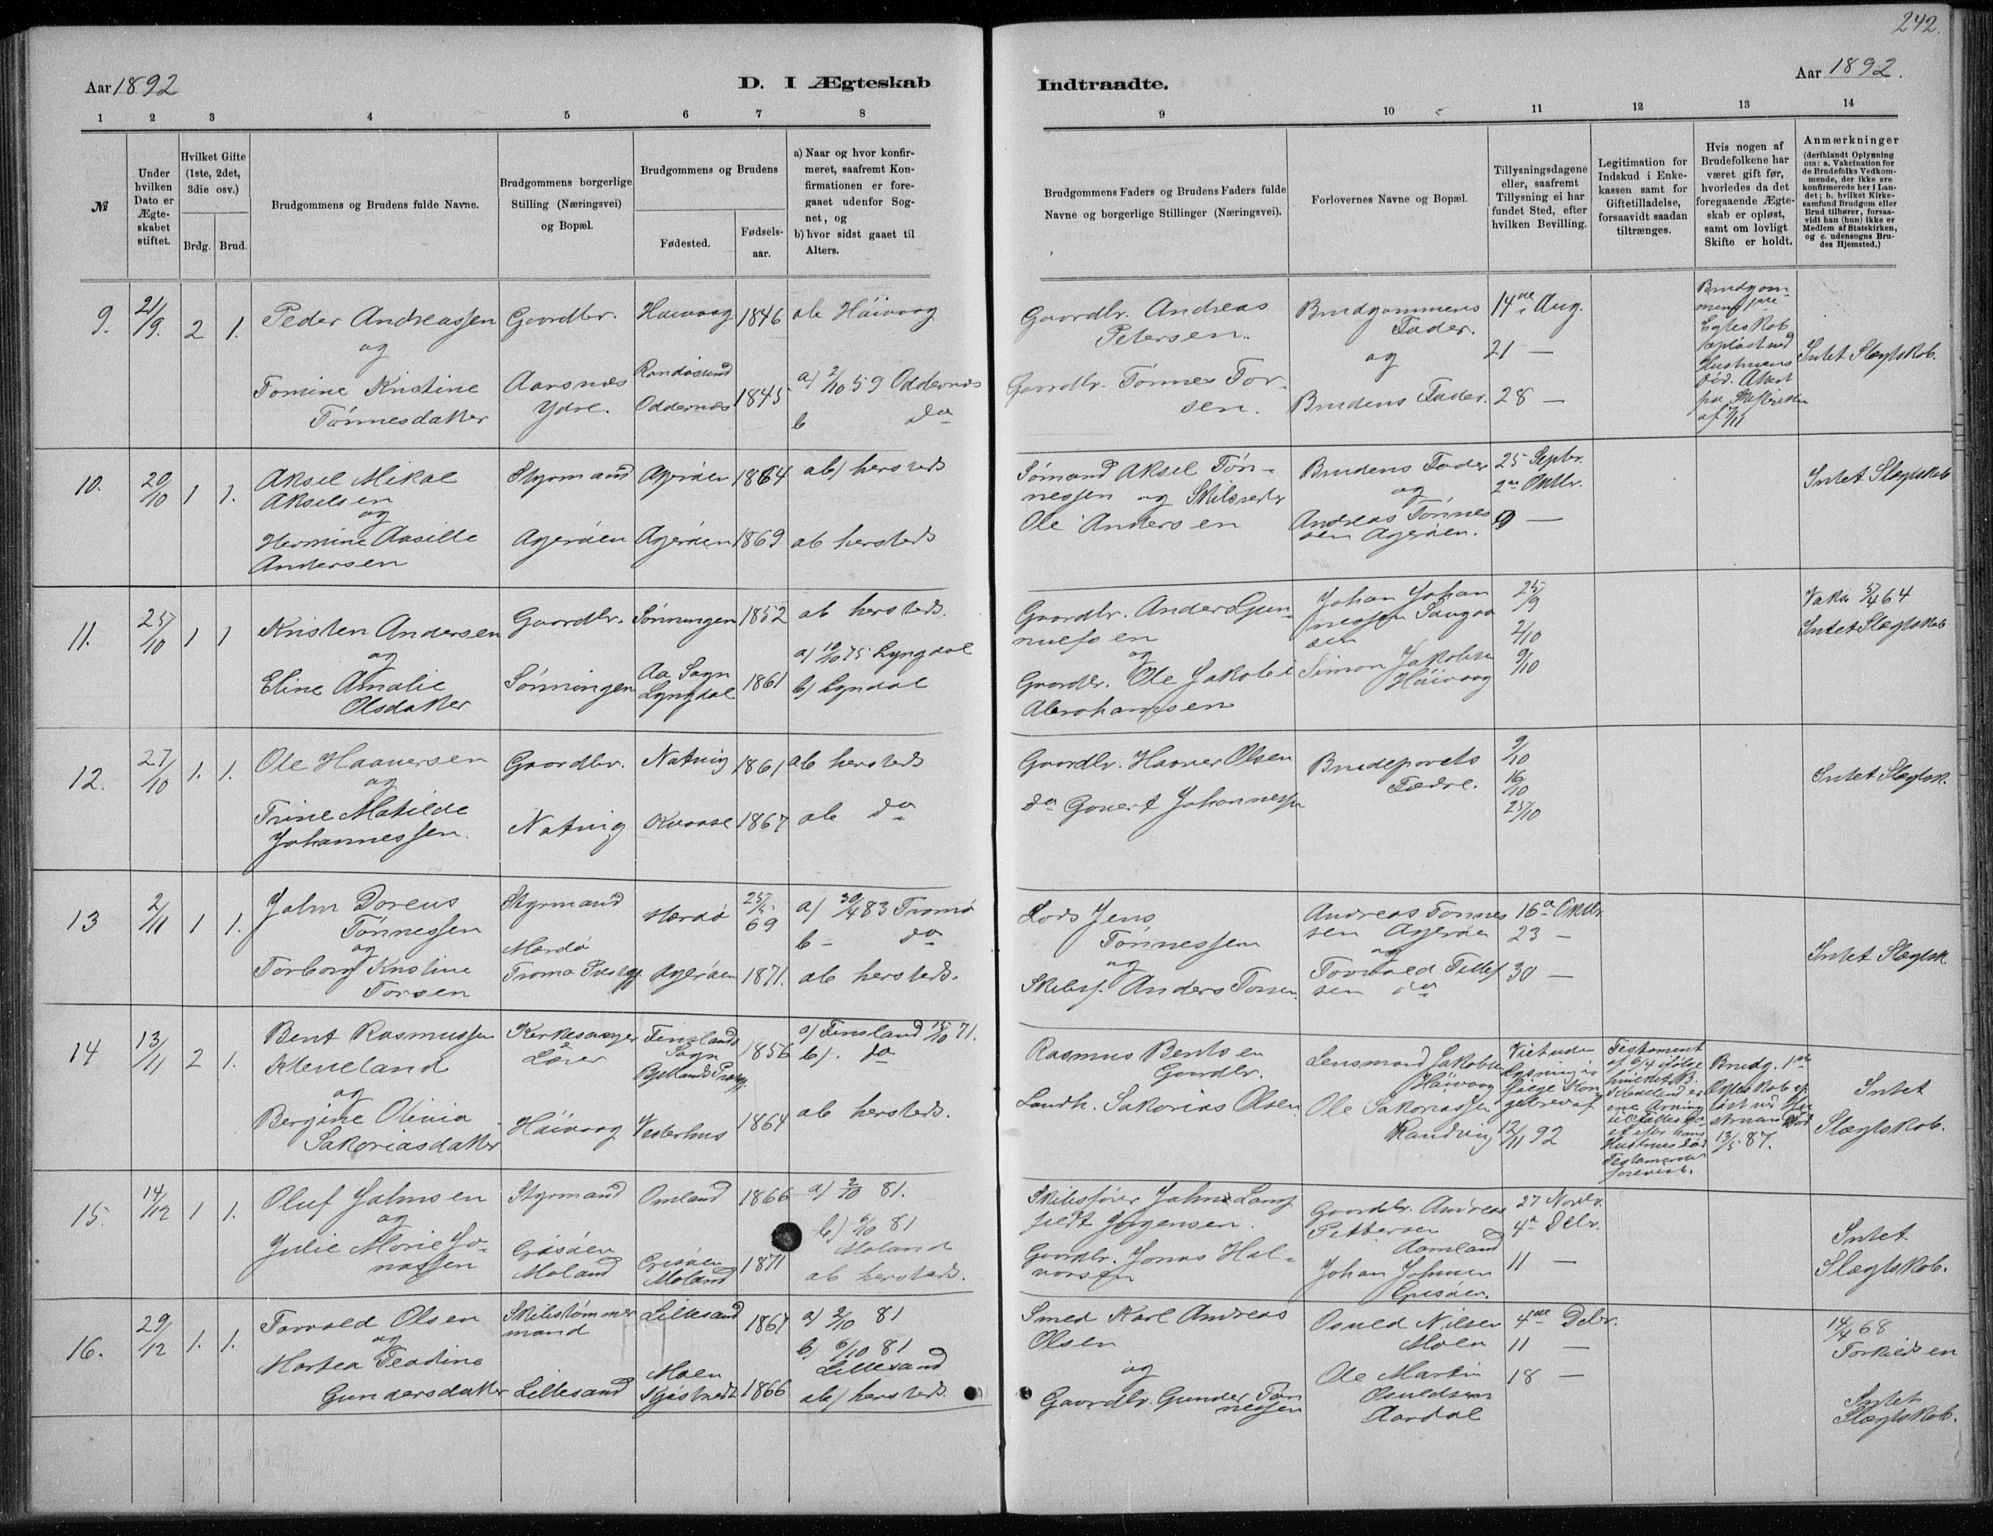 242.
Aar 1892
D. I Ægteskab
Indtraadte.
Aar 1892.
1 2 3 4 5 6 7 8 9 10 11 12 13 14
№
Under hvilken Dato er Ægteskabet stiftet.
Hvilket Gifte (1ste, 2det, 3die osv.)
Brdg. Brud.
Brudgommens og Brudens fulde Navne.
Brudgommens borgerlige Stilling (Næringsvei) og Bopæl.
Brudgommens og Brudens
Fødested. Fødselsaar.
a) Naar og hvor konfirmeret, saafremt Konfirmationen er foregaaet udenfor Sognet, og
b) hvor sidst gaaet til Alters.
Brudgommens Faders og Brudens Faders fulde Navne og borgerlige Stillinger (Næringsvei).
Forlovernes Navne og Bopæl.
Tillysningsdagene eller, saafremt Tillysning ei har fundet Sted, efter hvilken Bevilling.
Legitimation for Indskud i Enkekassen samt for Giftetilladelse, forsaavidt saadan tiltrænges.
Hvis nogen af Brudefolkene har været gift før, hvorledes da det foregaaende Ægteskab er opløst, samt om lovligt Skifte er holdt.
Anmærkninger
(deriblandt Oplysning om: a. Vakcination for de Brudefolks Vedkommende, der ikke ere konfirmerede her i Landet; b. hvilket Kirkesamfund Brudgom eller Brud tilhører, forsaavidt han (hun) ikke er Medlem af Statskirken, og c. udensogns Brudes Hjemsted.)
9. 21/9. 2 1. Peder Andreassen og Gaardbr. Haivaag 1846 ab Háivaag
Tomine Kristine Tønnesdatter Aarsnæs Ydre. Randøsund Oddernæs 1845 a) 2/10 59 Oddernæs b do
Gaardbr. Andreas Petersen. Brudgommens Fader. og 14de Aug. 21 —
Gaardbr. Tønnes Torsen. Brudens Fader. 28 —
Brudgommens Egteskab opløst ved Hustruens Død. Attest fra Skifteretten af
Intet Slægtskab.
10. 20/10 1 1. Aksel Mikal Akselsen og Styrmand Agerøen 1864 ab) hersteds
Hermine Aasille Andersen Agerøen Agerøen 1869 ab hersteds
Sømand Aksel Tønnessen og Skibsreder Ole Andersen
Brudens Fader og Andreas Tønnessen Agerøen.
25 Septbr. 2den Oktbr. 9 —
Intet Slægtskab
11. 25/10 1 1 Kristen Andersen og Gaardbr. Sønningen 1852 ab hersteds.
Eline Amalie Olsdatter Sønningen Aa Sogn Lyngdal 1861 a) 10/10 75 Lyngdal b) Lyndal
Gaardbr. Anders Gunnulfsen og Gaardbr. Ole Jakob Abrahamsen
Johan Johannessen Simon Jakobsen Håivaag
25/9 2/10 9/10
Vakci 5/4 64
Intet Slægtskab
12. 27/10 1. 1. Ole Haaversen og Gaardbr. Natvig 1861 ab hersteds
Trine Matilde Johannessen. Natvig Kvaase 1867 ab do
Gaardbr. Haaver Olsen do Govert Johannessen
Brudeparets Fædre.
9/10 16/10 25/10
Intet Slægtsk.
13 2/11 1 1. John Doreus Tønnessen og Styrmand Mærdø 25/5 69 a) 30/4 83 Tromø b - do
Torborg Kristine Torsen Mærdø Tromø Prestgj Agerøen 1871. ab hersteds.
Lods Jens Tønnessen og Skibsf. Anders Torsen.
Andreas Tønnessen Agerøen og Torvald Tellefsen do
16de Oktbr. 23 — 30 —
Intet Slægtsk.
14 13/11 2 1. Bent Rasmussen Kleveland og Kirkesanger & Lærer Finsland Sogn Bjellands Præstgj. 1856 a) Finsland 15/10 71. b). do
Bergine Olivia Sakariasdatter Håivaag Vesterhus 1864 ab hersteds.
Rasmus Bentsen Gaardbr. Landh. Sakarias Olsen
Lensmand Jakobsen Håivaag Ole Sakariassen Randvig
Viet uden Lysning ifølge Kongebrev af 12/11 92
Testament af 6/4 ifølge hvilket B. Kleveland er
Hustrues død Testamentet forevist.
Brudg. 1ste Egteskab opløst ved Hustruens Død 13/5 87.
Intet Slægtskab.
15. 14/12 1 1. Oluf Johnsen og Styrmand Omland 1866 a) 2/10 81. b) 6/10 81 Moland
Julie Marie Jonassen Grisøen Moland Grisøen Moland 1871 ab hersteds.
Skibsfører John Langfeldt Jørgensen. Gaardbr. Jonas Halvorsen
Gaardbr. Andreas Pettersen Aamland Johan Johnsen Grisøen.
27 Novbr. 4de Dcbr. 11 —
Intet Slægtskab.
16. 29/12 1. 1. Torvald Olsen og Skibstømmermand Lillesand 1867 a) 2/10 81 b) 6/10 81 Lillesand
Martea Teadine Gundersdatter Lillesand Moen 1866 ab) hersteds
Smed Karl Andreas Olsen og Gaardbr. Gunder Tønnessen
Osuld Nilsen Moen Ole Martin Osuldsen Aardal
4de Dcbr. 11 — 18 —
14/4 68 Torkildsen
Intet Slægtskab.